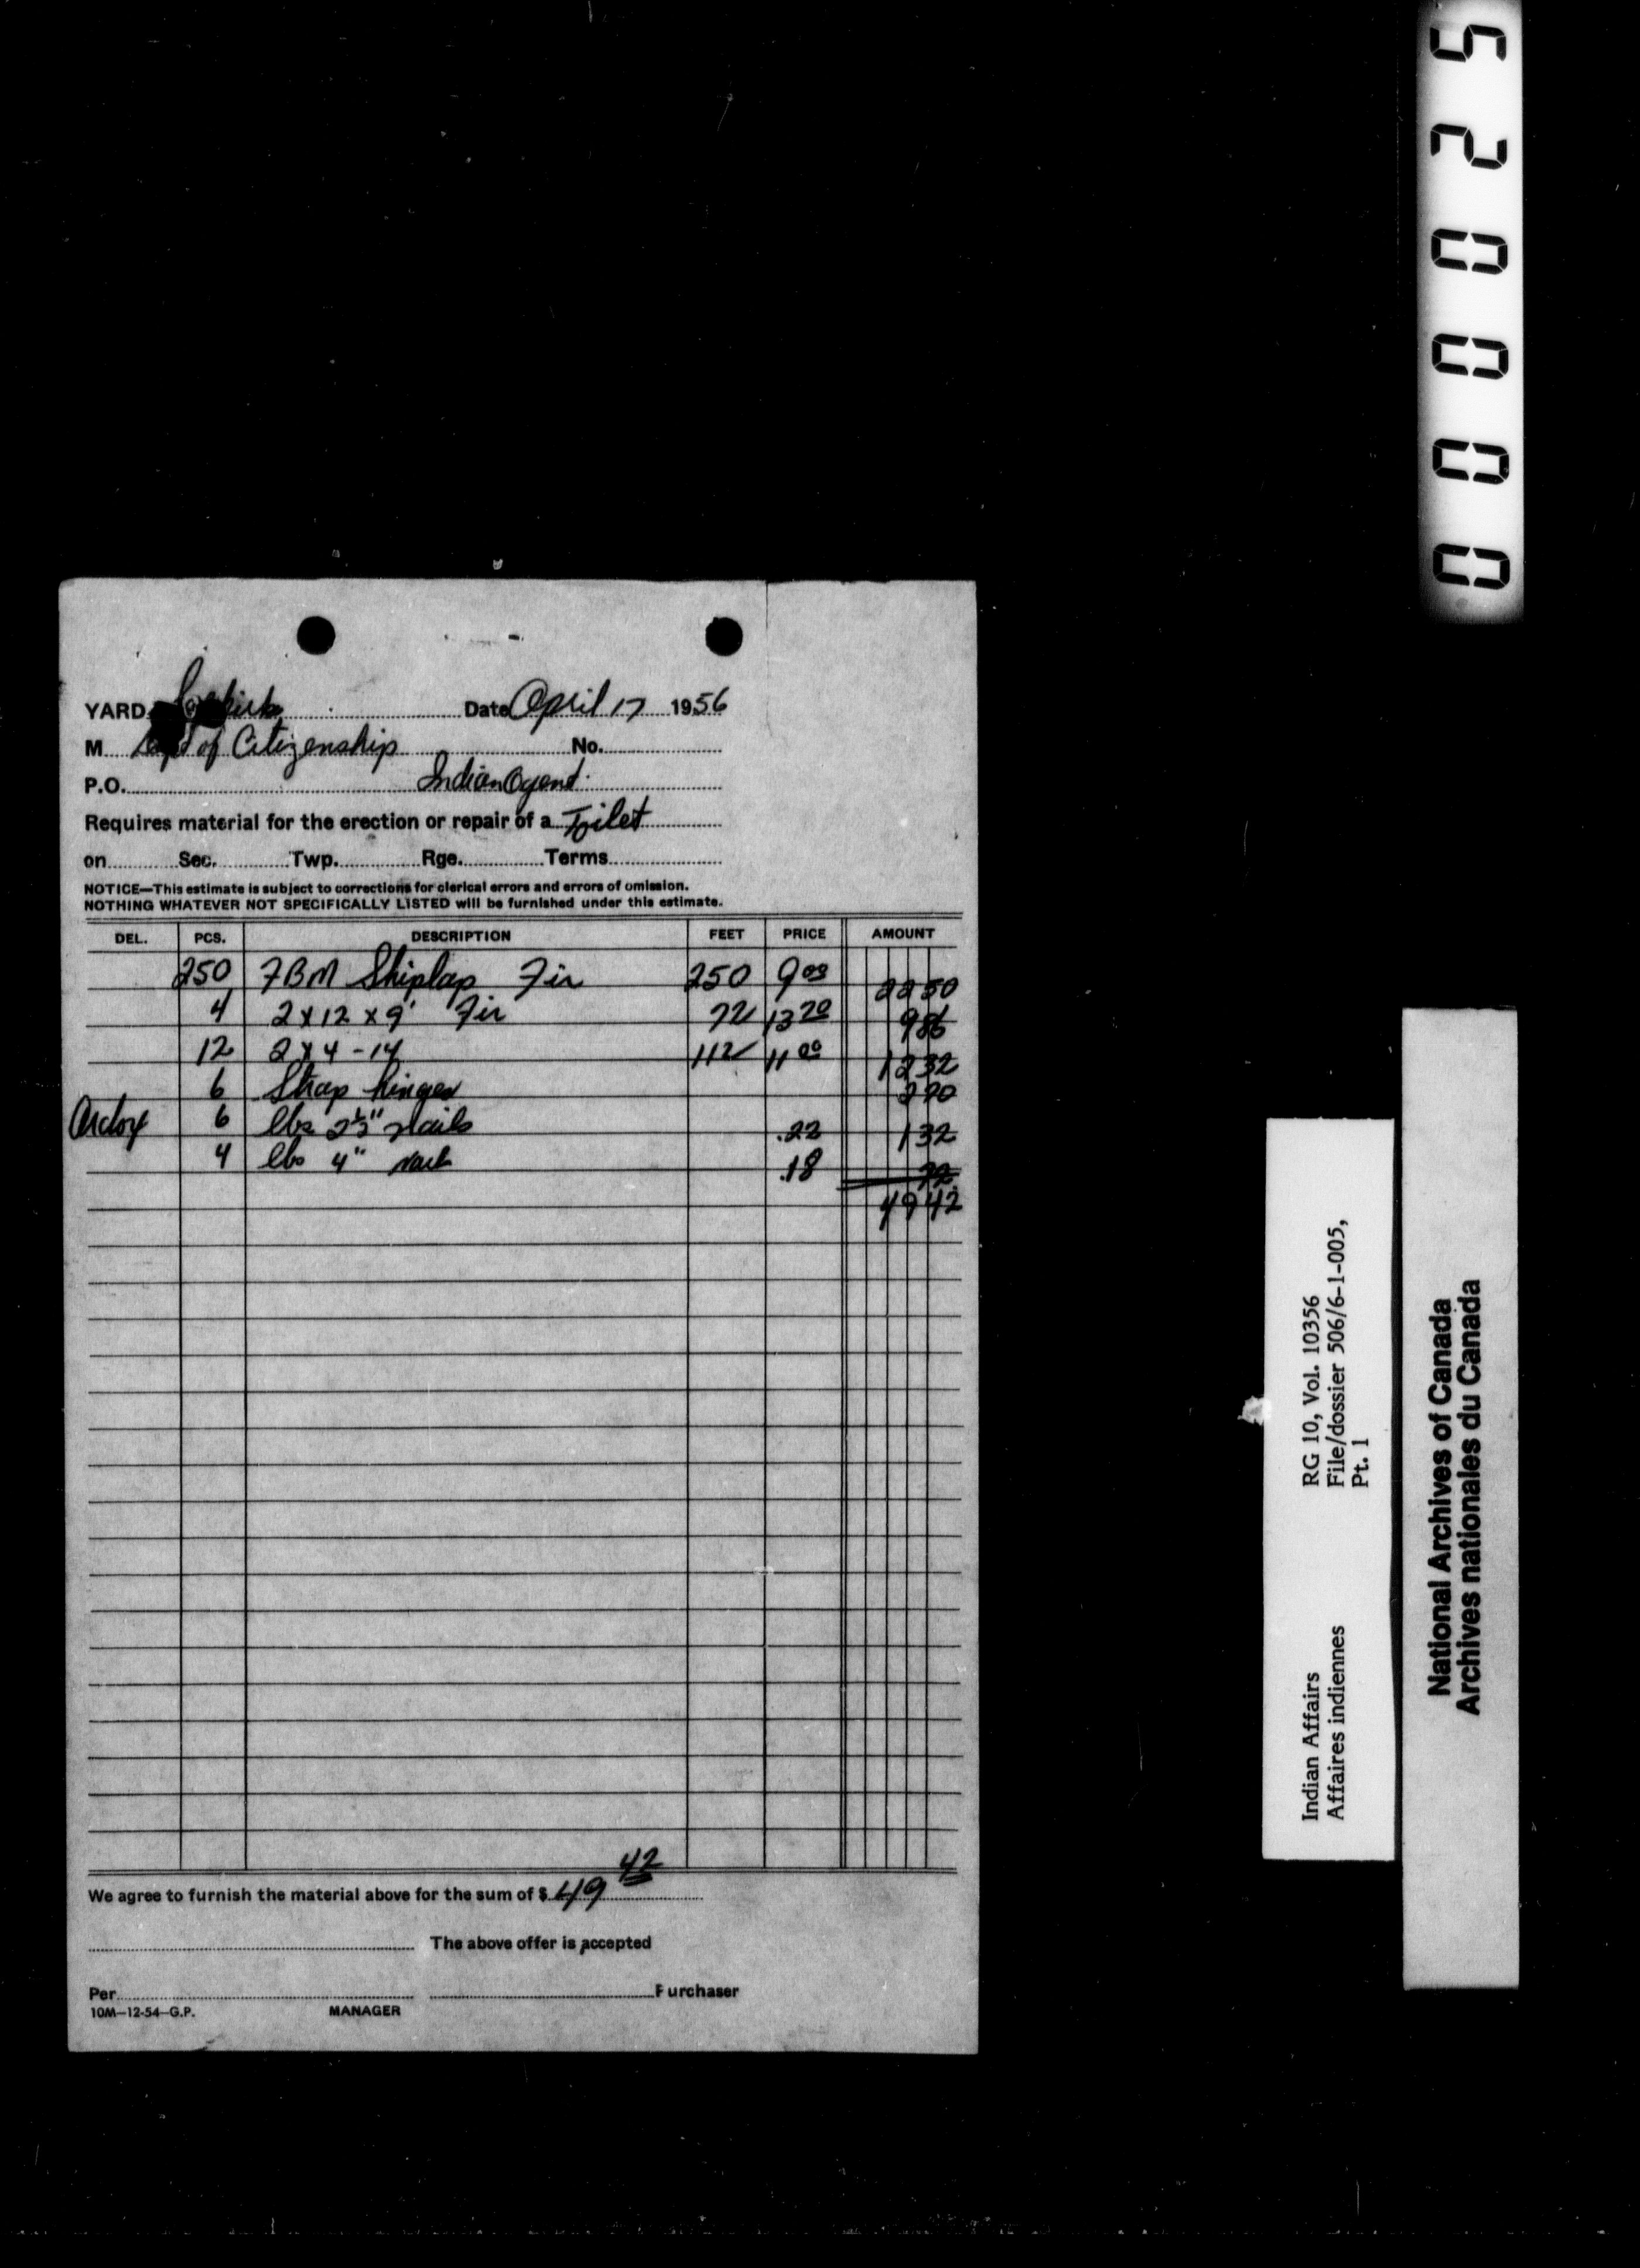 YARD Selkirk Date April 17 1956
M Dept of Citizenship No.
P.O. Indian Agent.
Requires material for the erection or repair of a Toilet
on Sec. Twp. Rge. Terms
NOTICE—This estimate is subject to corrections for clerical errors and errors of omission.
NOTHING WHATEVER NOT SPECIFICALLY LISTED will be furnished under this estimate.
DEL. PCS. DESCRIPTION FEET PRICE AMOUNT
250 FBM Shiplap Fir 250 9 00 22 50
4 2 x 12 x 9' Fir 72 13 70 9 86
12 2 x 4 - 14 112 11 00 12 32
6 Strap hinges 2 70
Ardox 6 lbs 2½" nails .22 1 32
4 lbs 4" nails .18 72
49 42
We agree to furnish the material above for the sum of $ 49 42
The above offer is accepted
Per Purchaser
10M—12-54—G.P. MANAGER
000025
Indian Affairs RG 10, Vol. 10356
Affaires indiennes File/dossier 506/6-1-005,
Pt. 1
National Archives of Canada
Archives nationales du Canada